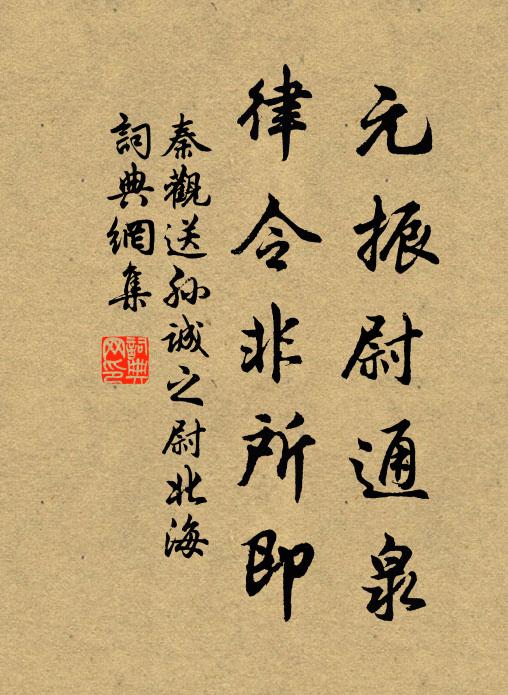 元振尉通泉
律令非所即
秦觀送孫誠之尉北海
詞典網集
詞典
网印